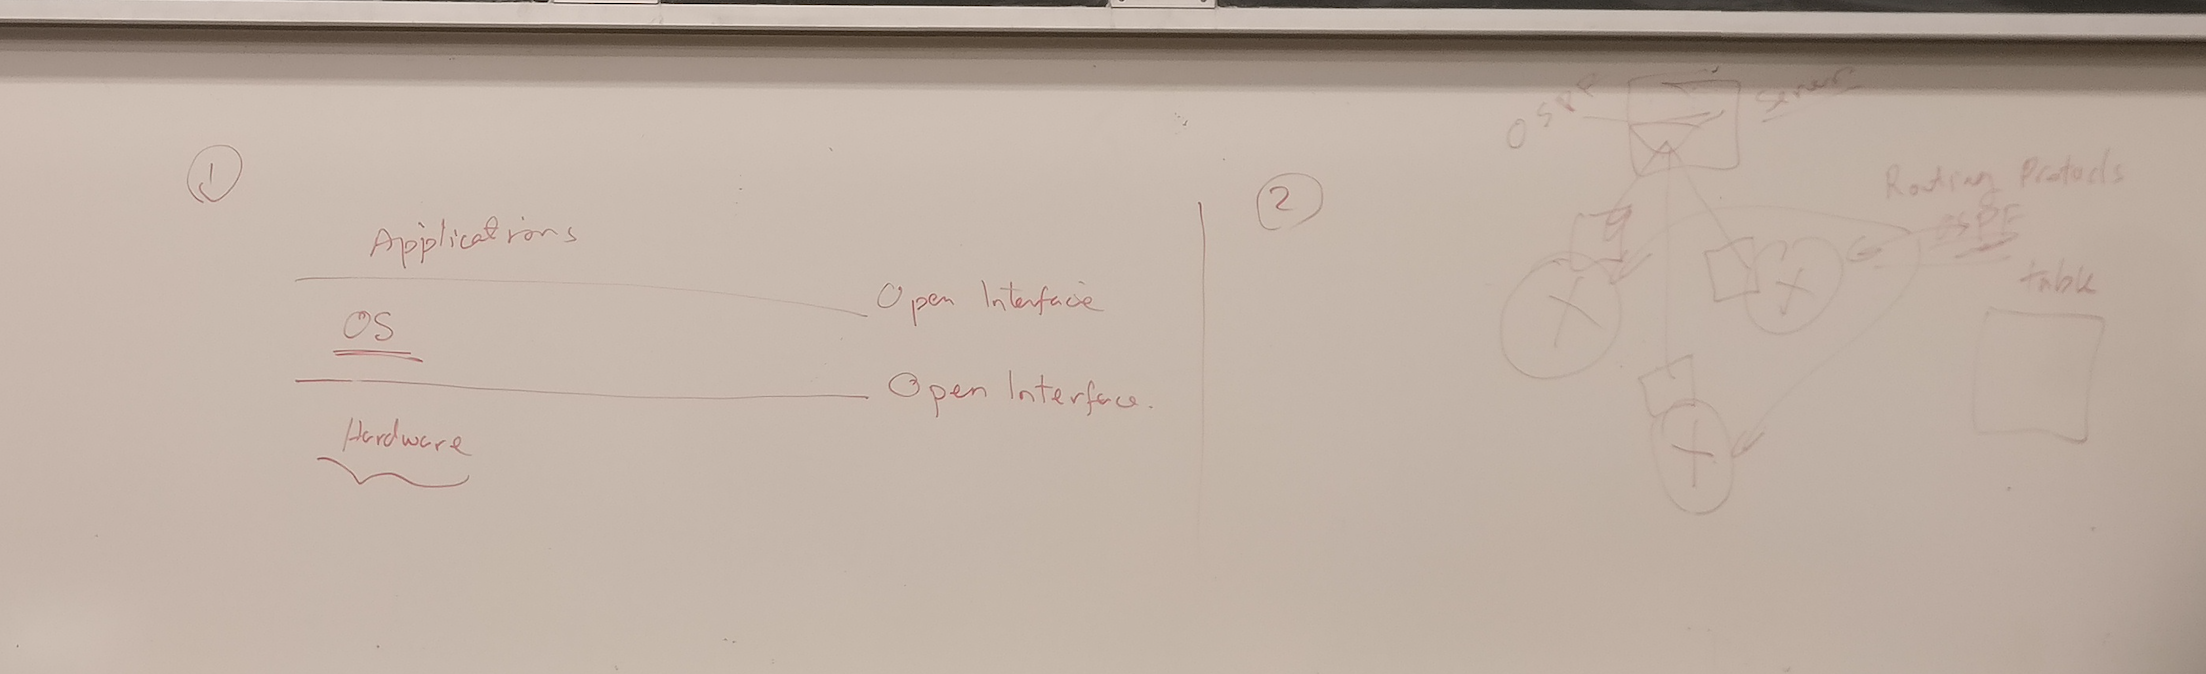 1
Applications
Open Interface
OS
Open Interface.
Hardware
2
OSPF
Server
Routing Protocols
OSPF
table